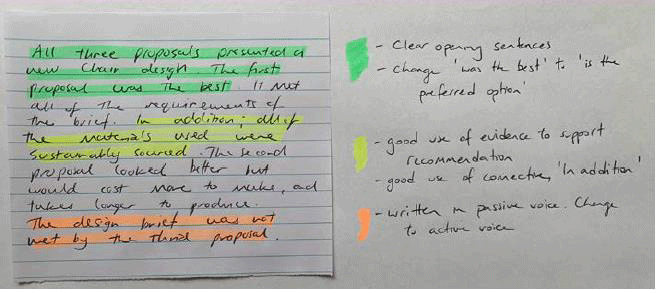 All three proposals presented a
new chair design. The first
proposal was the best. It met
all of the requirements of
the brief. In addition, all of
the materials used were
sustainably sourced. The second
proposal looked better but
would cost more to make, and
takes longer to produce.
The design brief was not
met by the third proposal.
- Clear opening sentences
- Change 'was the best' to 'is the
preferred option'
- good use of evidence to support
recommendation
- good use of connective, 'In addition'
- written in passive voice. Change
to active voice